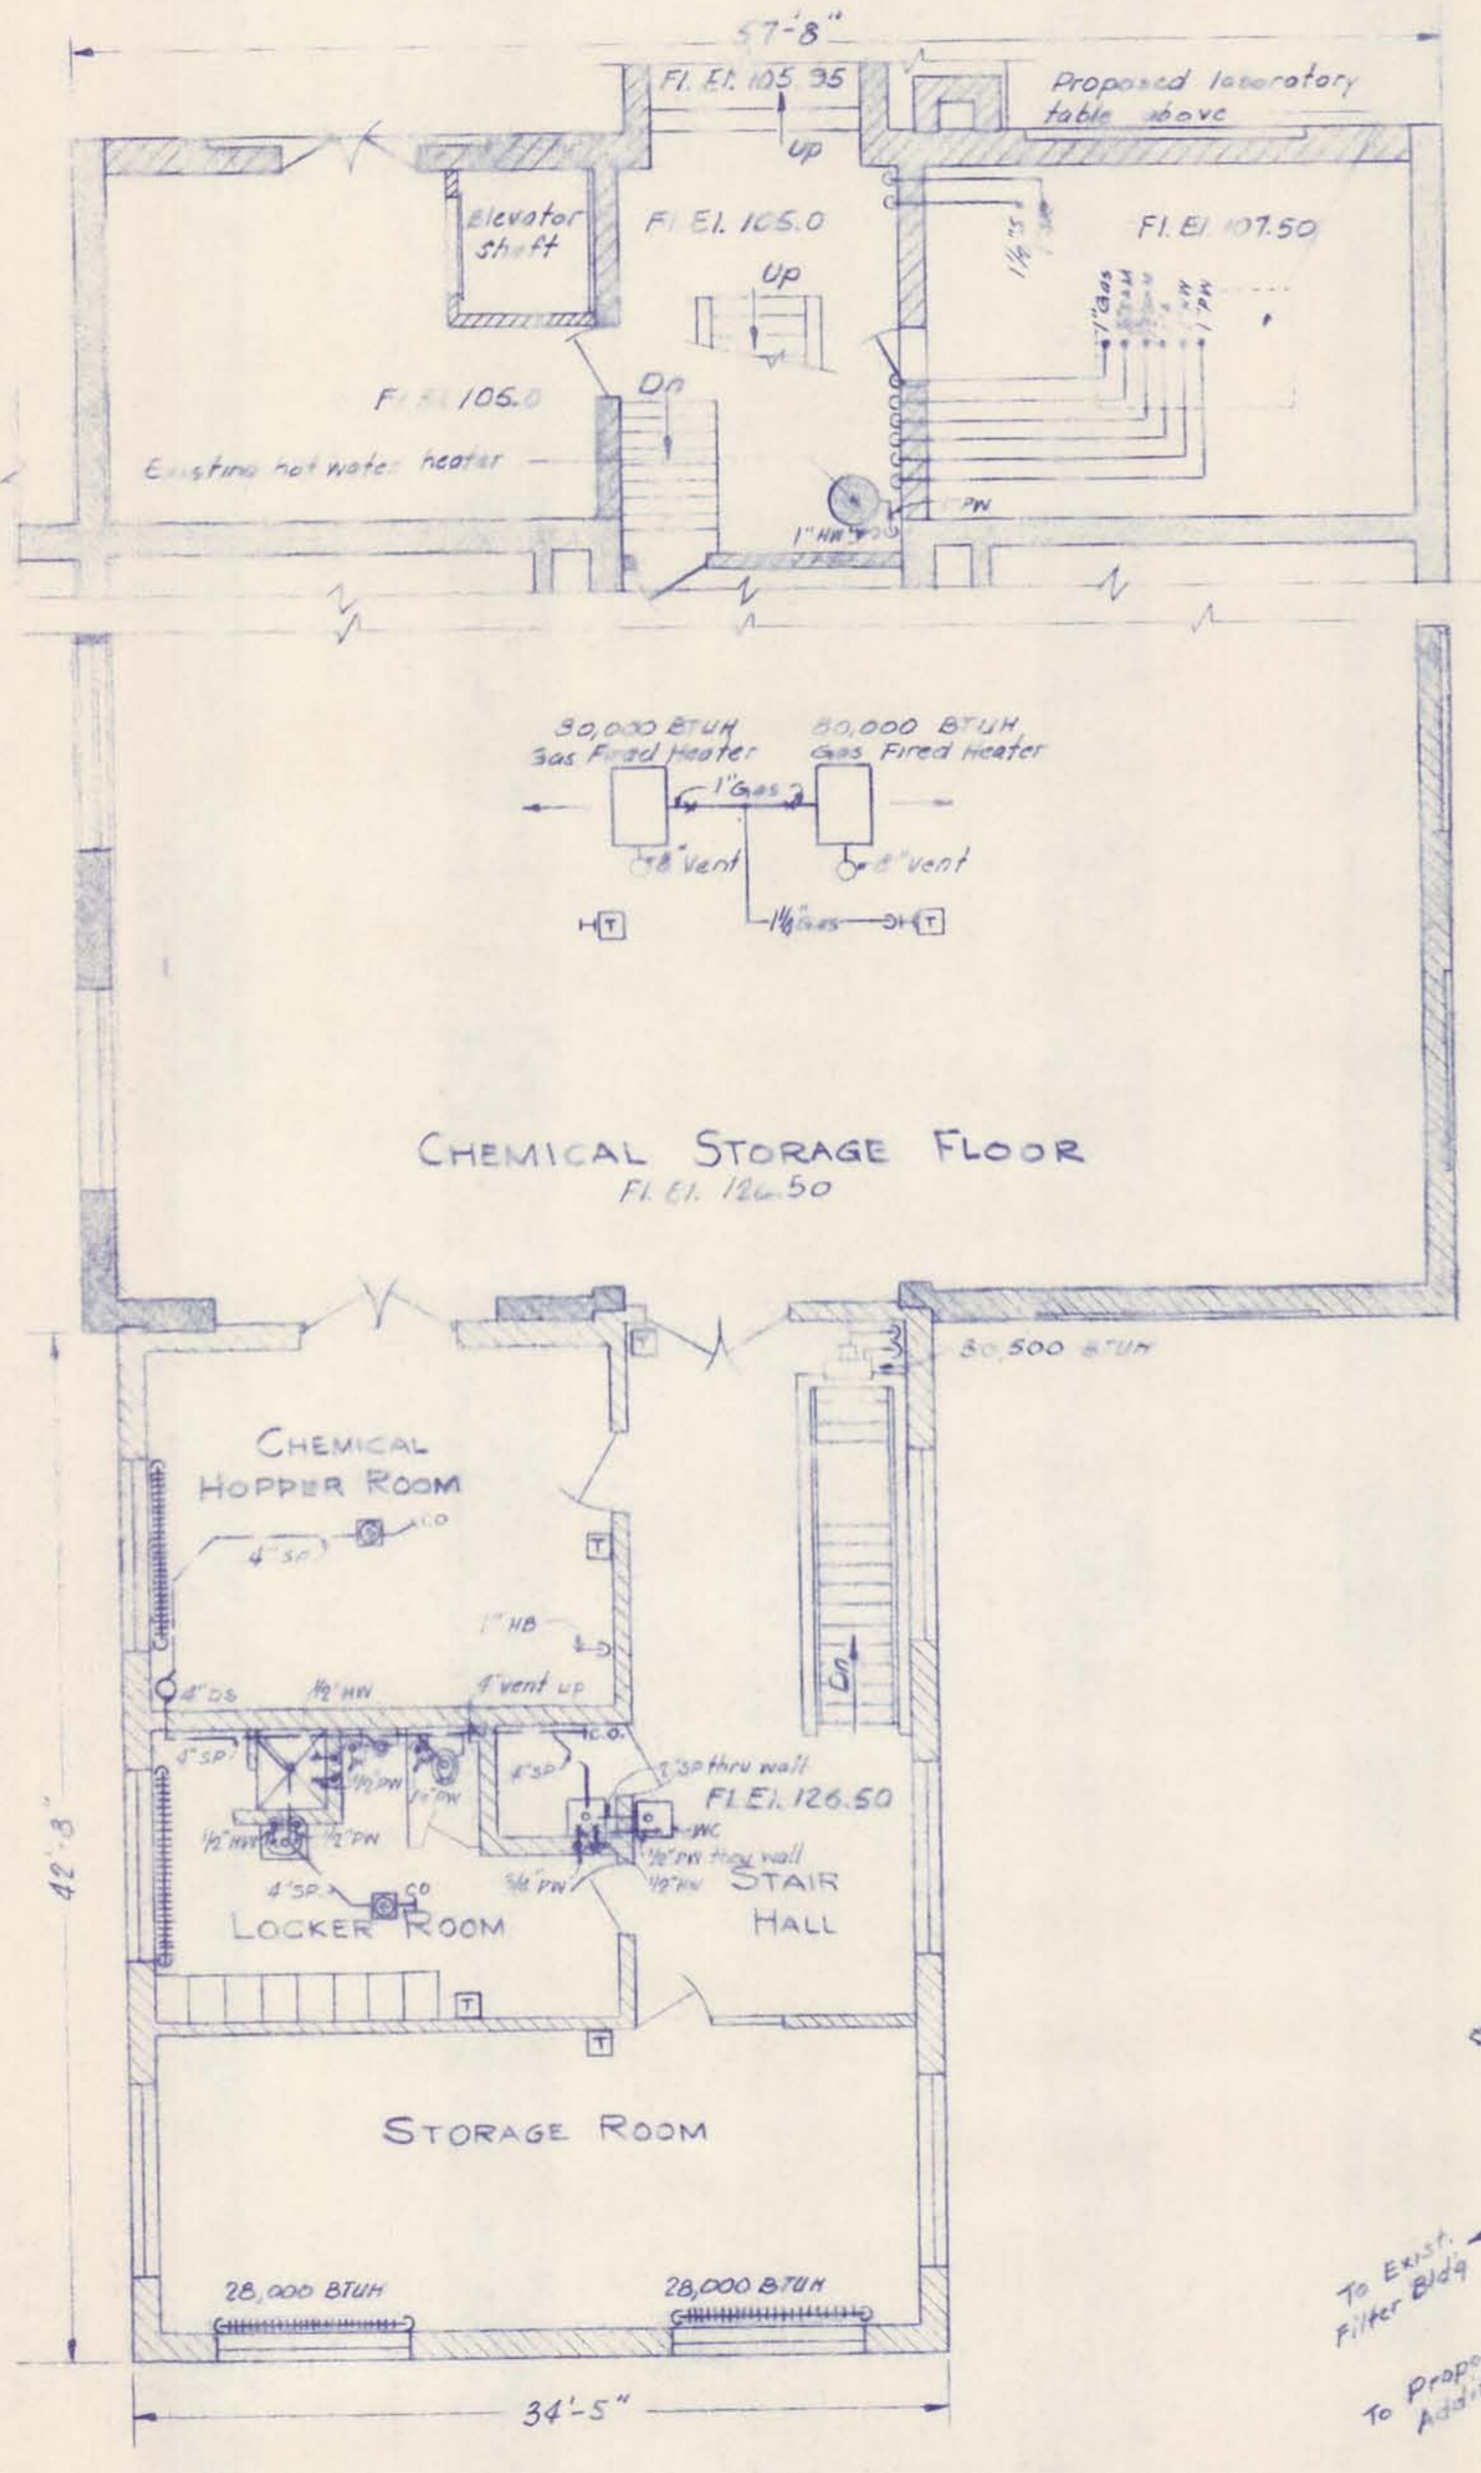 57'-8"
Fl. El. 105.95
Proposed laboratory
table above
up
Elevator
shaft
Fl El. 105.0
Fl. El. 107.50
1½"S
Up
1" Gas
1" PW
Dn
105.0
Existing hot water heater
PW
1" HW
80,000 BTUH
Gas Fired Heater
80,000 BTUH
Gas Fired Heater
1" Gas
8" Vent
8" Vent
Gas
T
T
CHEMICAL STORAGE FLOOR
Fl. El. 126.50
T
30,500 BTUH
CHEMICAL
HOPPER ROOM
CO
4" SP
T
1" HB
Dn
4" DS
½" HW
4" vent up
C.O.
4" SP
4" SP
2" SP thru wall
½" PW
Fl. El. 126.50
½" HW
½" PW
WC
½" PW thru wall
4" SP
CO
¾" PW
½" HW
STAIR
HALL
LOCKER ROOM
T
T
42'-8"
STORAGE ROOM
28,000 BTUH
28,000 BTUH
34'-5"
To Exist.
Filter Bldg
To